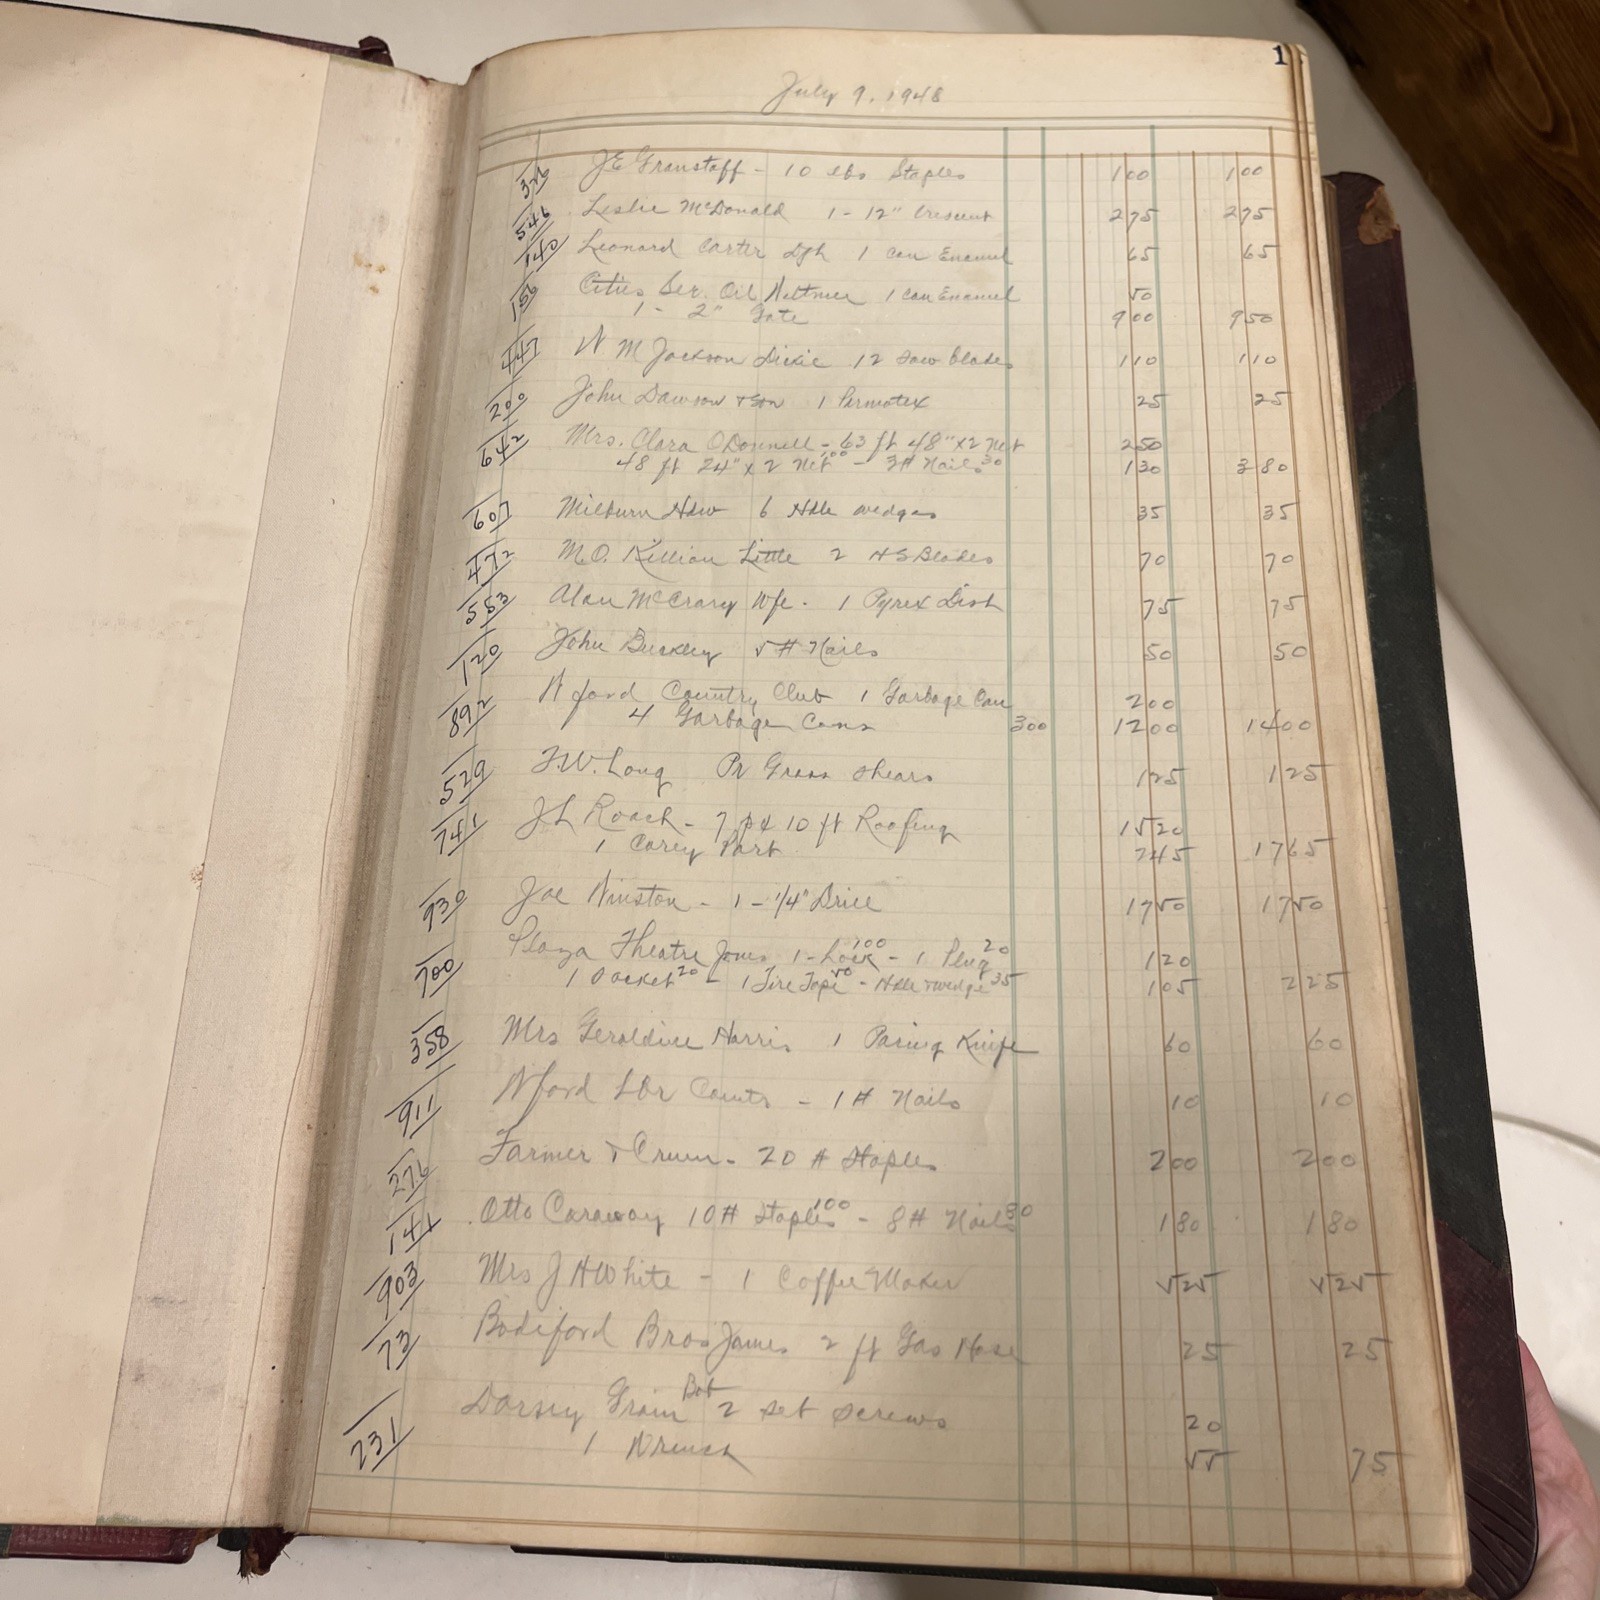 1
July 9, 1948
326 JE Granstaff - 10 lbs Staples 100 100
546 Leslie McDonald 1 - 12" Crescent 275 275
140 Leonard Carter 1 can Enamel 65 65
156 Cities Ser. Oil 1 can Enamel 50
1 - 2" Gate 900 950
447 W M Jackson Dickie 12 Saw blades 110 110
200 John Dawson & Son 1 Permatex 25 25
642 Mrs. Clara O'Donnell - 63 ft 48" x 2 Net 250
48 ft 24" x 2 Net 100 - 3# Nails 30 130 380
607 Milburn Hdw 6 Hdle wedges 35 35
472 M.O. Killian Little 2 HS Blades 70 70
553 Alan McCrary Wfe. 1 Pyrex Dish 75 75
120 John Buckley 5# Nails 50 50
892 W ford Country Club 1 Garbage Can 200
4 Garbage Cans 300 1200 1400
529 F.W. Long Pr Grass Shears 125 125
741 J L Roach - 7 10 ft Roofing 1520
1 Carey Part 245 1765
930 Joe Winston - 1 - 1/4" Drill 1750 1750
700 Plaza Theatre Jones 1 - Lock 100 - 1 Plug 20 120
1 Socket 20 - 1 Fire Tape 50 - Hdle & wedge 35 105 225
358 Mrs Geraldine Harris 1 Paring Knife 60 60
911 W ford Lbr - 1# Nails 10 10
276 Farmer & Crum - 20 # Staples 200 200
141 Otto Caraway 10# Staples 100 - 8# Nails 80 180 180
903 Mrs J H White - 1 Coffee Maker 525 525
73 Bodiford Bros James 2 ft Gas Hose 25 25
231 Dorsey Grain Bob 2 set screws 20
1 Wrench 55 75